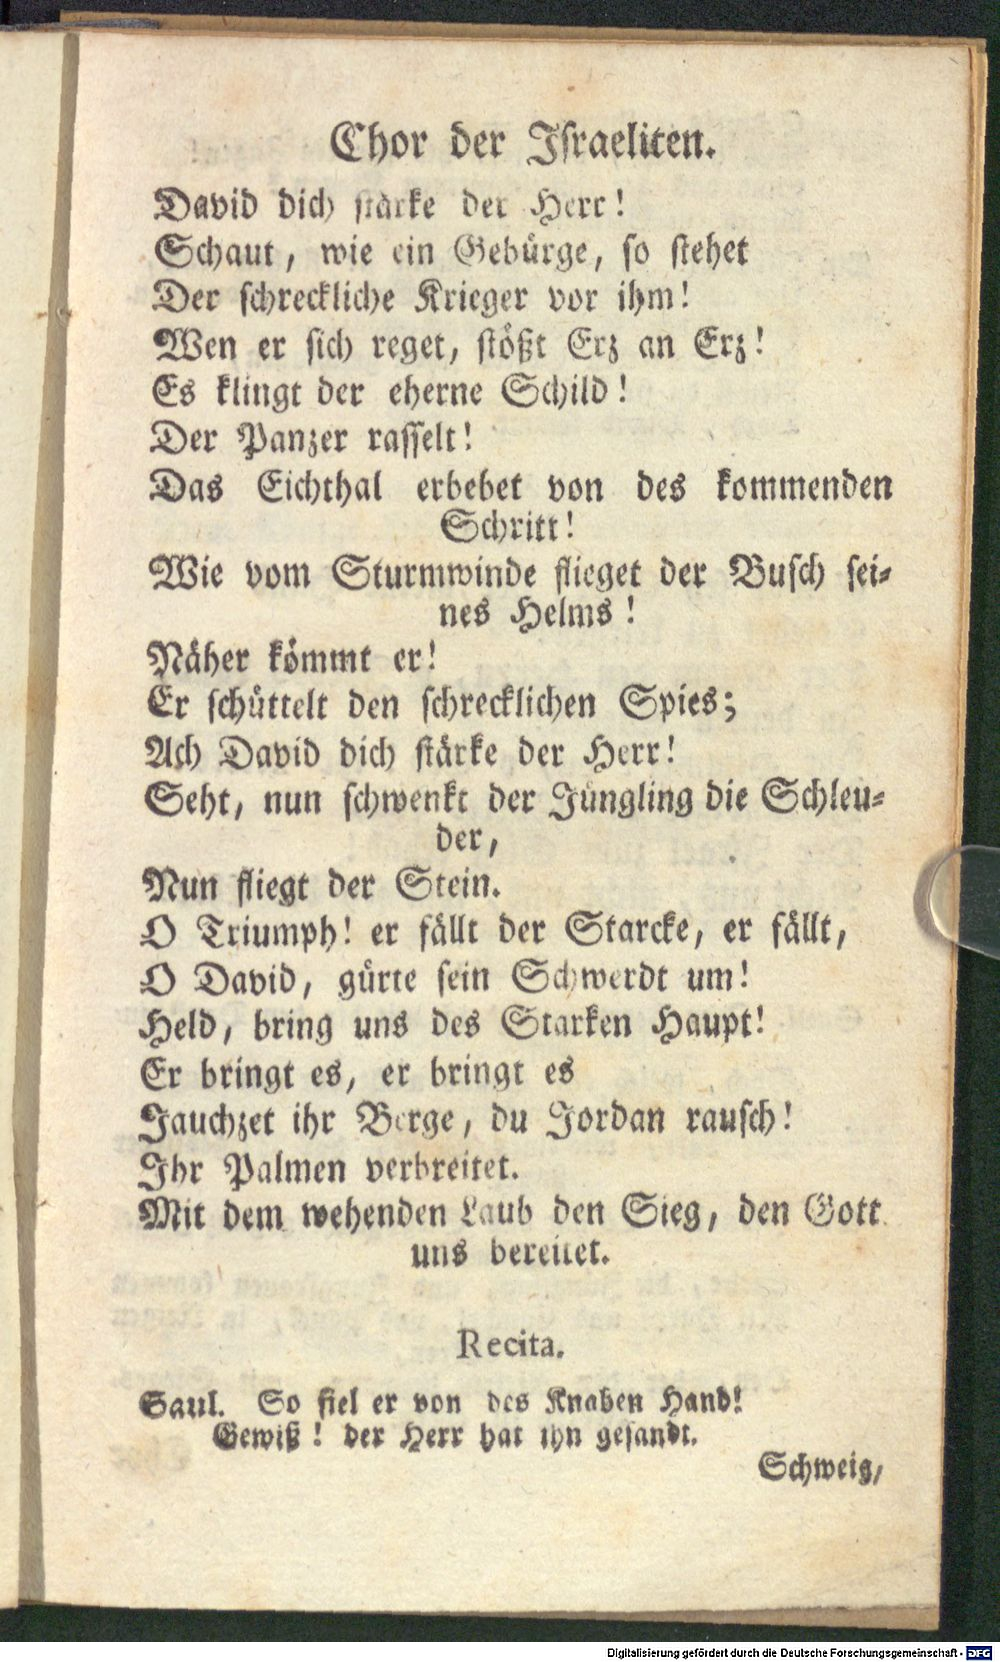 Chor der Iſraeliten.
David dich ſtärke der Herr!
Schaut, wie ein Gebürge, ſo ſtehet
Der ſchreckliche Krieger vor ihm!
Wen er ſich reget, ſtößt Erz an Erz!
Es klingt der eherne Schild!
Der Panzer raſſelt!
Das Eichthal erbebet von des kommenden
Schritt!
Wie vom Sturmwinde flieget der Buſch ſei⸗
nes Helms!
Näher kömmt er!
Er ſchüttelt den ſchrecklichen Spies;
Ach David dich ſtärke der Herr!
Seht, nun ſchwenkt der Jüngling die Schleu⸗
der,
Nun fliegt der Stein.
O Triumph! er fällt der Starcke, er fällt,
O David, gürte ſein Schwerdt um!
Held, bring uns des Starken Haupt!
Er bringt es, er bringt es
Jauchzet ihr Berge, du Jordan rauſch!
Ihr Palmen verbreitet.
Mit dem wehenden Laub den Sieg, den Gott
uns bereitet.
Recita.
Saul. So fiel er von des Knaben Hand!
Gewiß! der Herr hat ihn geſandt.
Schweig,
Digitalisierung gefördert durch die Deutsche Forschungsgemeinschaft - DFG